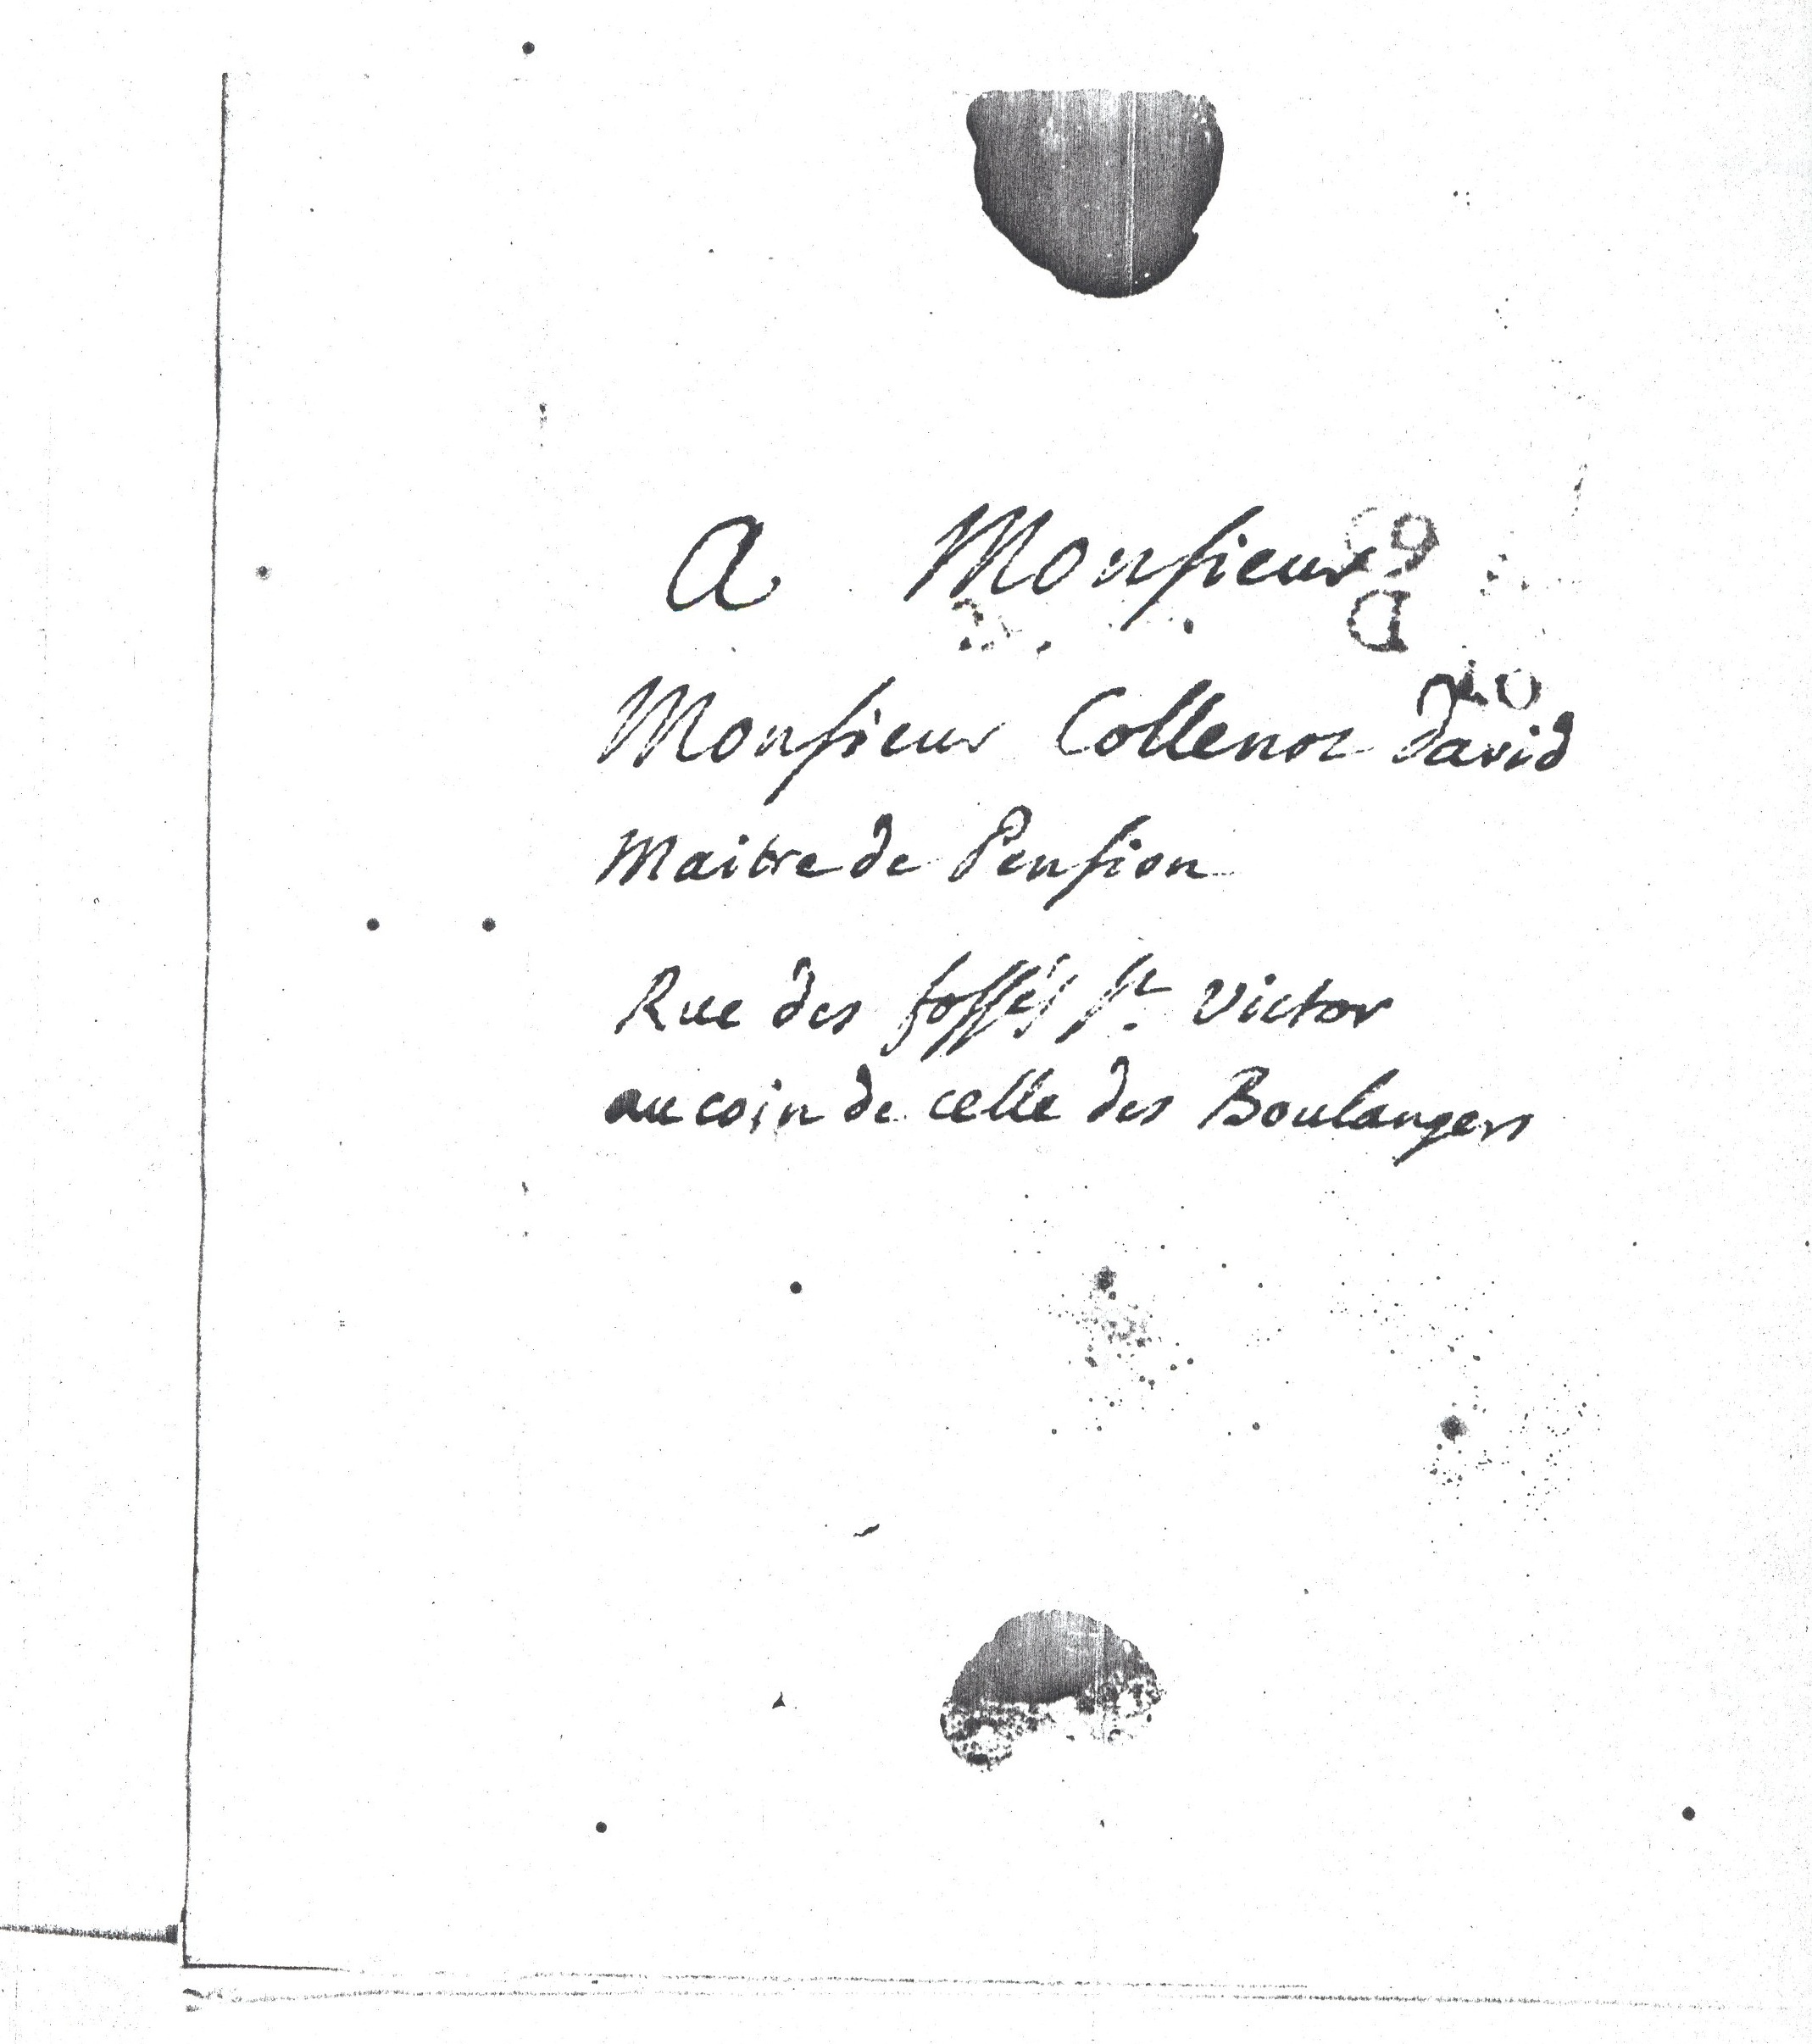 A Monsieur
Monsieur Collenot David
Maitre de Pension
Rue des fossés St. Victor
au coin de celle des Boulangers